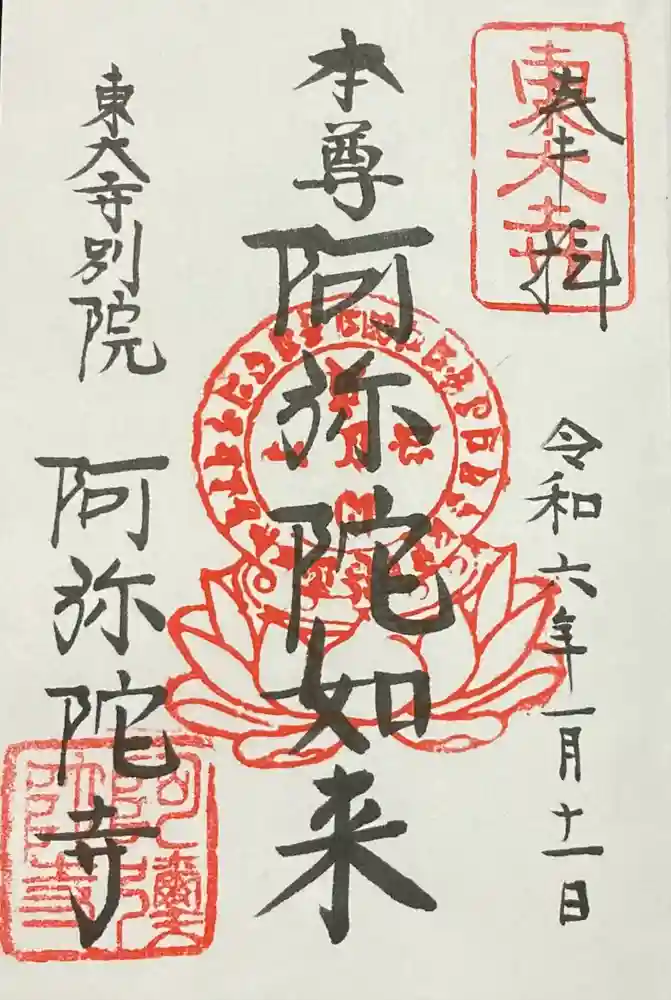 東大寺
奉拝
令和六年一月十一日
本尊
阿弥陀如来
東大寺別院
阿弥陀寺